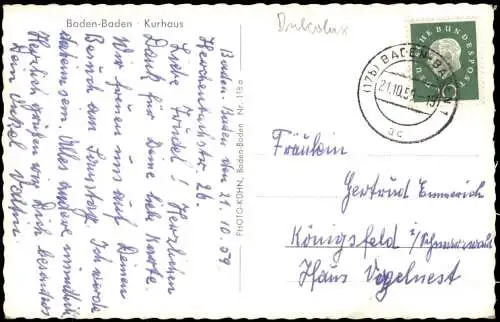 Baden-Baden · Kurhaus
Baden-Baden den 21.10.59
Herchenbachstr. 26.
Liebe Trudel! Herzlichen
Dank für Deine liebe Karte.
Wir freuen uns auf Deinen
Besuch am Sonntag. Ich werde
daheim sein. Alles andere mündlich.
Herzlich grüßen wir Dich besonders
Dein Onkel
PHOTO-KÜHN, Baden-Baden Nr. 118a
DEUTSCHE BUNDESPOST
10
(17b) BADEN-BADEN 1
21.10.59
ac
Fräulein
Gertrud Emmerich
Königsfeld i/Schwarzwald
Haus Vogelnest